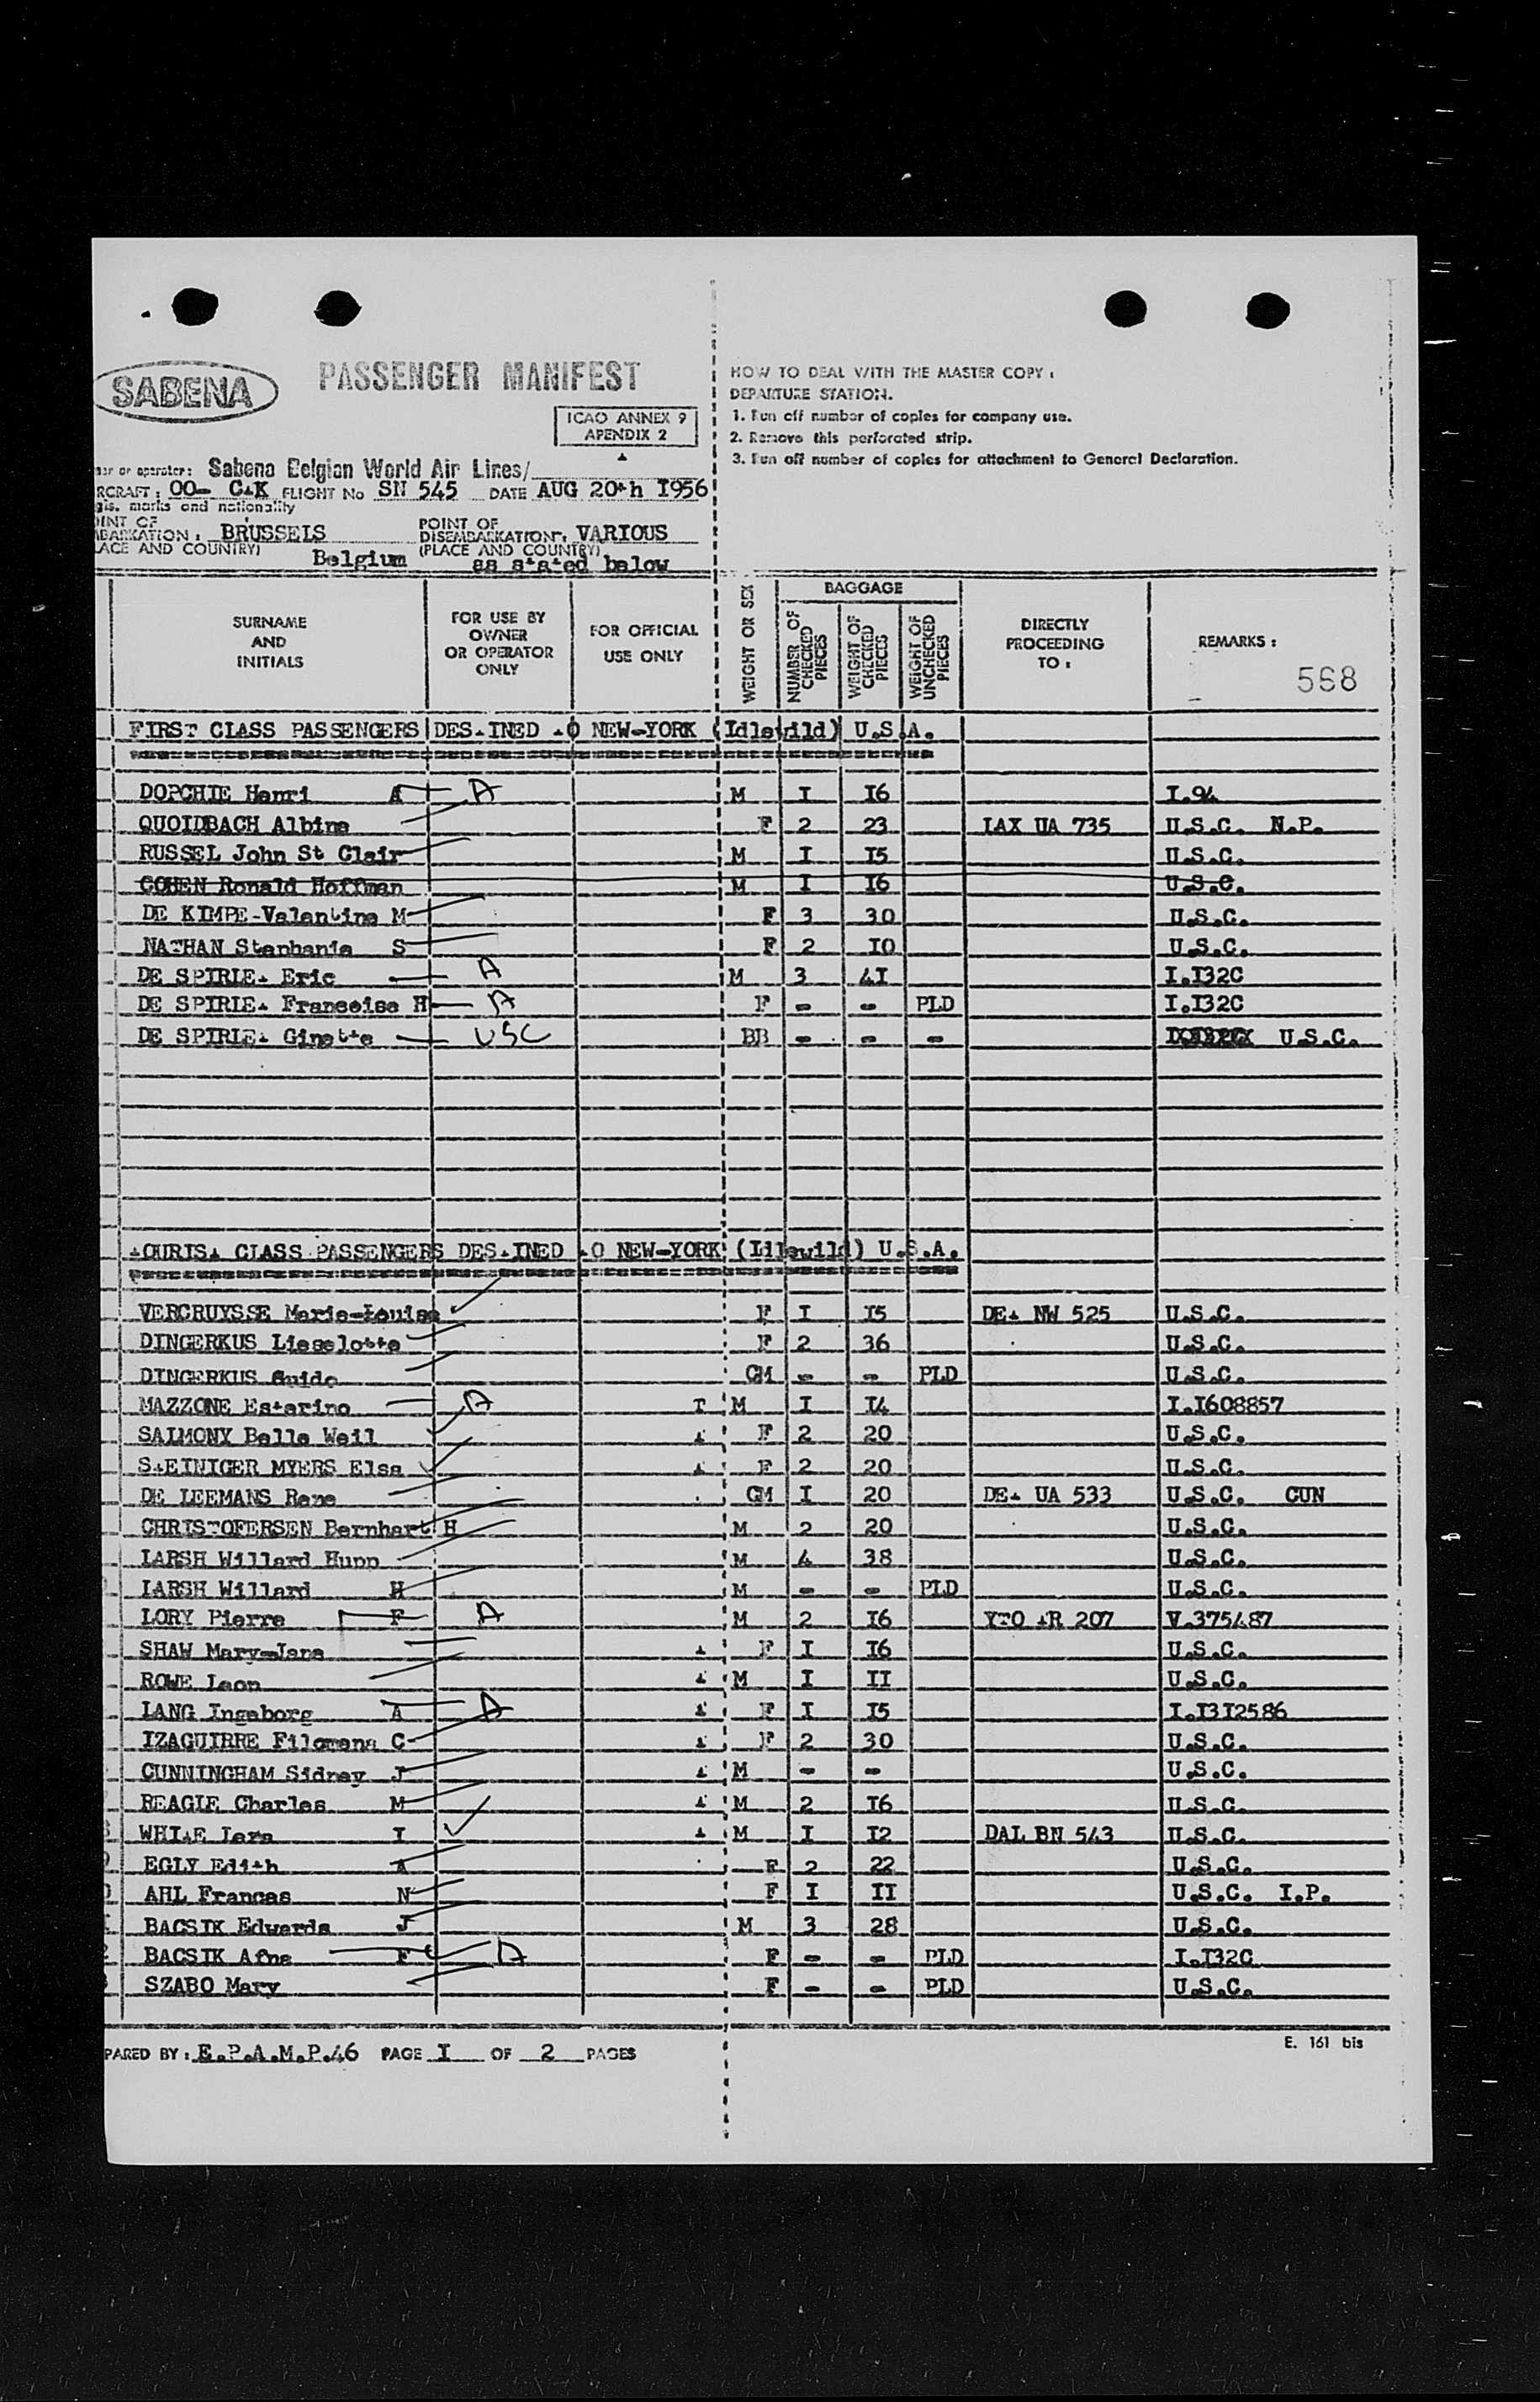 SABENA
PASSENGER MANIFEST
ICAO ANNEX 9
APENDIX 2
HOW TO DEAL WITH THE MASTER COPY :
DEPARTURE STATION.
1. Run off number of copies for company use.
2. Remove this perforated strip.
3. Run off number of copies for attachment to General Declaration.
or operator: Sabena Belgian World Air Lines/
RCRAFT: OO- FLIGHT No SN 545 DATE AUG 20th I956
gis. marks and nationality
INT OF
BARKATION : BRUSSELS
POINT OF
DISEMBARKATION: VARIOUS
ACE AND COUNTRY) Belgium
(PLACE AND COUNTRY) as stated below
SURNAME AND INITIALS
FOR USE BY OWNER OR OPERATOR ONLY
FOR OFFICIAL USE ONLY
WEIGHT OR SEX
BAGGAGE
NUMBER OF CHECKED PIECES
WEIGHT OF CHECKED PIECES
WEIGHT OF UNCHECKED PIECES
DIRECTLY PROCEEDING TO :
REMARKS :
568
FIRST CLASS PASSENGERS DES.INED .O NEW-YORK (Idlewild) U.S.A.
DOPCHIE Henri A A M I I6 I.94
QUOIDBACH Albine F 2 23 LAX UA 735 U.S.C. N.P.
RUSSEL John St Clair M I I5 U.S.C.
COHEN Ronald Hoffman M I I6 U.S.C.
DE KIMPE-Valentine M F 3 30 U.S.C.
NATHAN Stephanie S F 2 I0 U.S.C.
DE SPIRLE. Eric A M 3 4I I.I32C
DE SPIRLE. Francoise H A F - - PLD I.I32C
DE SPIRLE. Ginette USC BB - - - U.S.C.
.OURIS. CLASS PASSENGERS DES.INED .O NEW-YORK (Idlewild) U.S.A.
VERCRUYSSE Marie-Louise F I I5 DE. NW 525 U.S.C.
DINGERKUS Lieselotte F 2 36 U.S.C.
DINGERKUS Guido CM - - PLD U.S.C.
MAZZONE Estarino A T M I I4 I.I608857
SALMONY Belle Weil F 2 20 U.S.C.
S.EINIGER MYERS Elsa F 2 20 U.S.C.
DE LEEMANS Rene CM I 20 DE. UA 533 U.S.C. CUN
CHRISTOFERSEN Bernhart H M 2 20 U.S.C.
LARSH Willard Hupp M 4 38 U.S.C.
LARSH Willard H M - - PLD U.S.C.
LORY Pierre F A M 2 I6 YTO .R 207 V.375487
SHAW Mary-Jane F I I6 U.S.C.
ROWE Leon M I II U.S.C.
LANG Ingeborg A A F I I5 I.I3I2586
IZAGUIRRE Filomena C F 2 30 U.S.C.
CUNNINGHAM Sidney J M - - U.S.C.
REAGLE Charles M M 2 I6 U.S.C.
WHI.E Lera I M I I2 DAL BN 543 U.S.C.
EGLY Edith A F 2 22 U.S.C.
AHL Frances N F I II U.S.C. I.P.
BACSIK Edwards J M 3 28 U.S.C.
BACSIK Afna F A F - - PLD I.I32C
SZABO Mary F - - PLD U.S.C.
PARED BY : E.P.A.M.P.46 PAGE I OF 2 PAGES
E. 161 bis